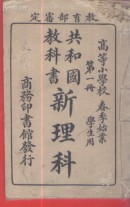 教育部審定
高等小學校 春季始業
第一冊 學生用
共和國
教科書
新理科
商務印書館發行